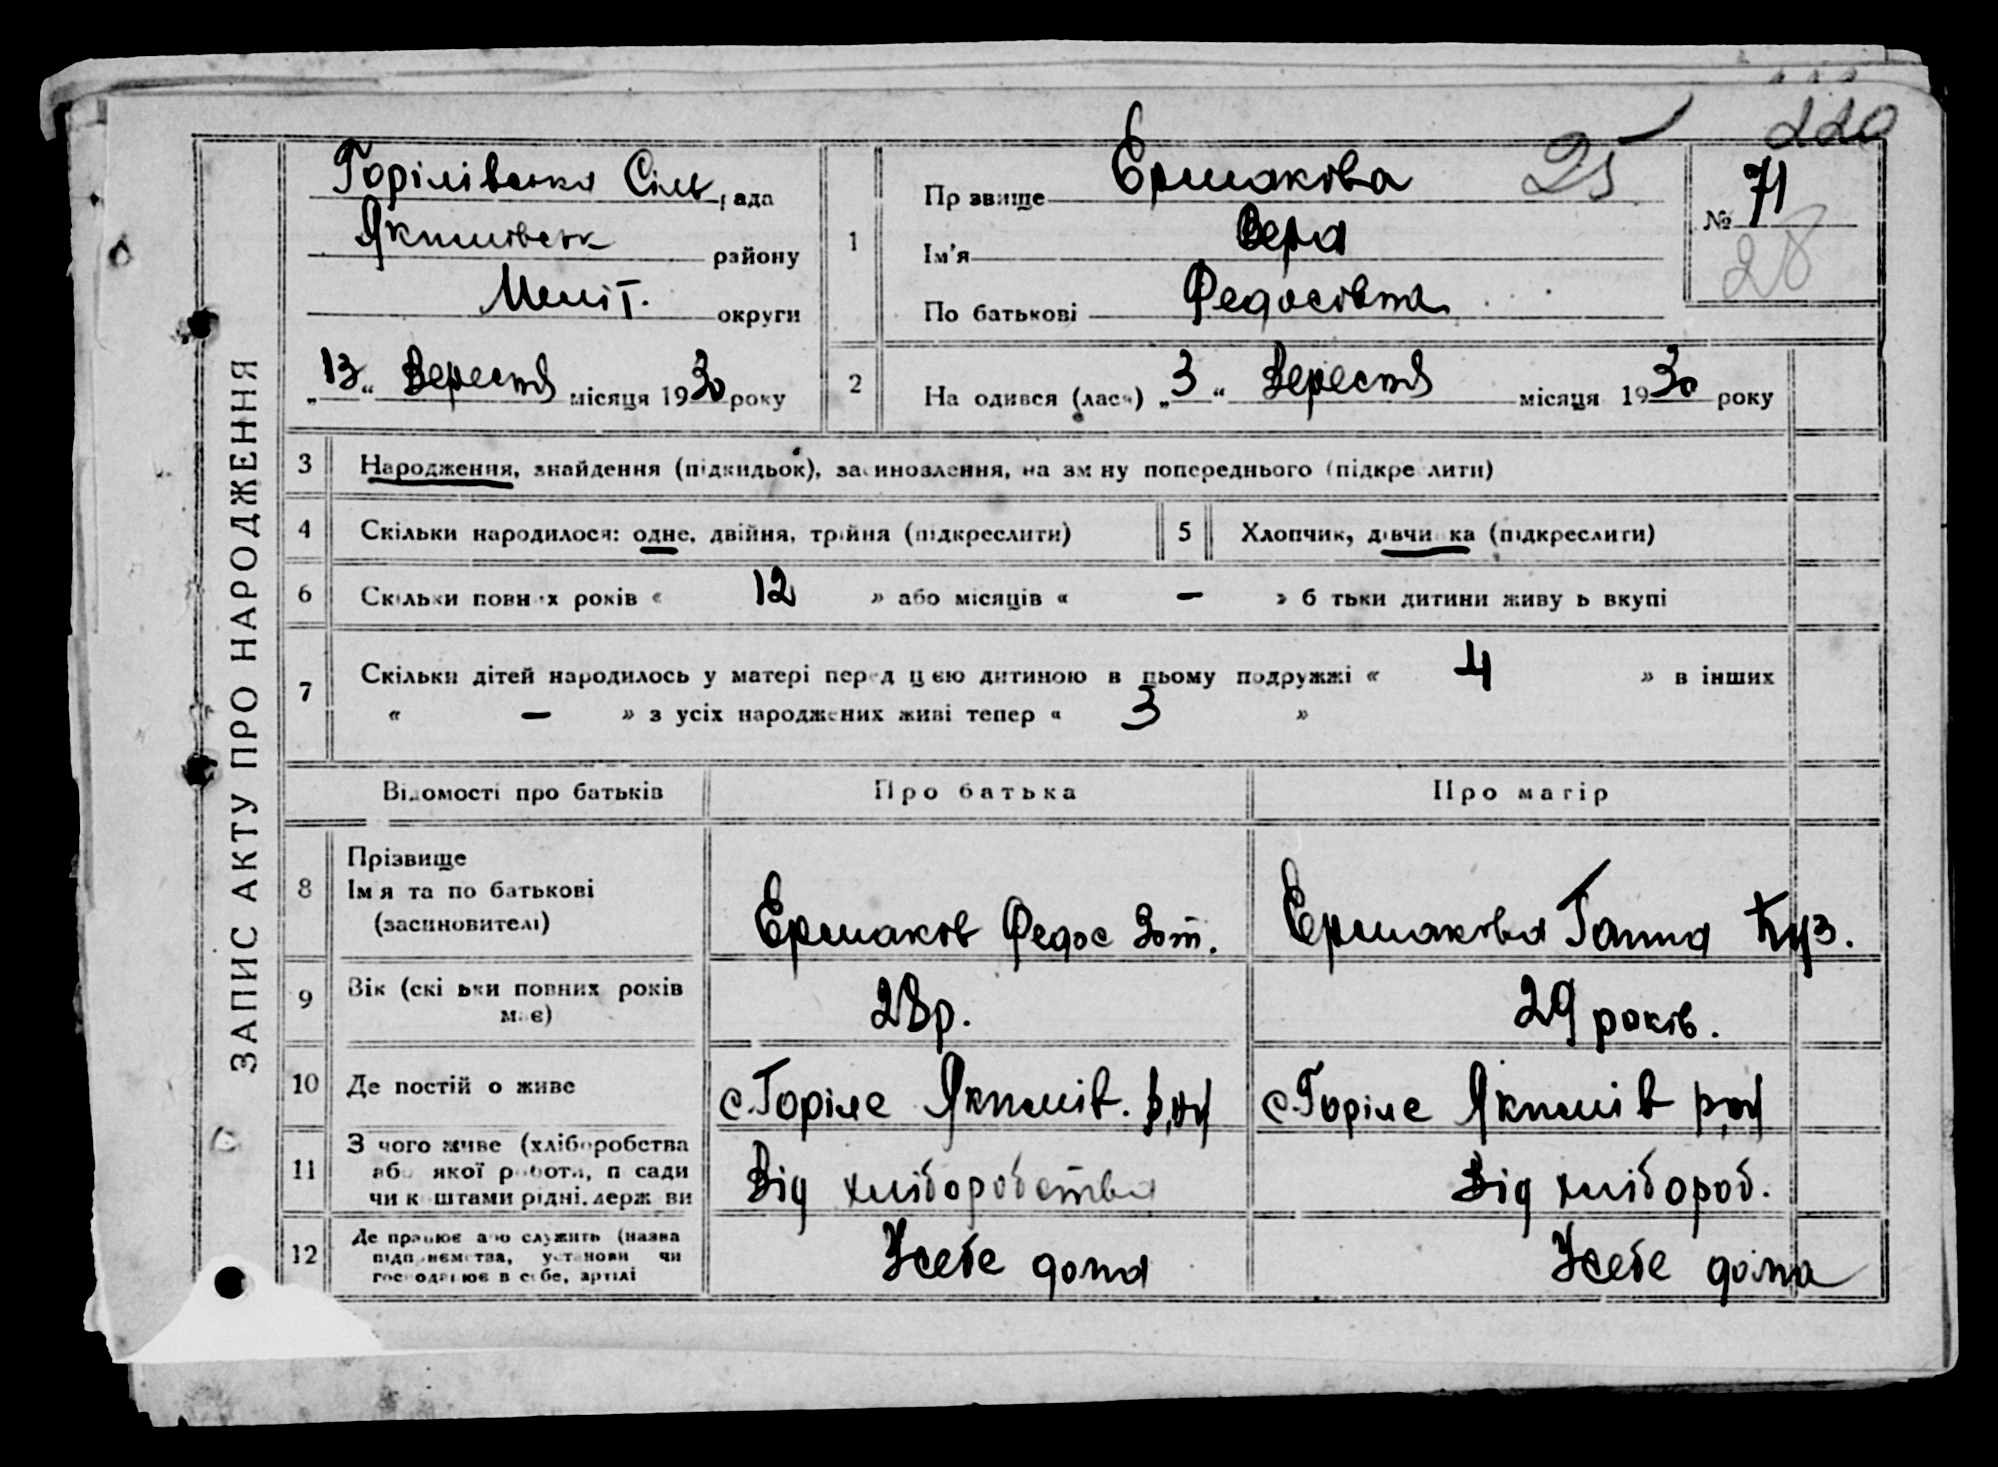 220
25
ЗАПИС АКТУ ПРО НАРОДЖЕННЯ
Горілівська Сіль рада
Якимівськ району
Меліт. округи
„13“ Вересня місяця 1930 року
1
Прізвище Ермакова
Ім'я Вера
По батькові Федосівна
№ 71
28
2
Народився (лася) „3“ Вересня місяця 1930 року
3 Народження, знайдення (підкидьок), засиновлення, на зміну попереднього (підкреслити)
4 Скільки народилося: одне, двійня, трійня (підкреслити)
5 Хлопчик, дівчинка (підкреслити)
6 Скільки повних років « 12 » або місяців « — » батьки дитини живуть вкупі
7 Скільки дітей народилось у матері перед цією дитиною в цьому подружжі « 4 » в інших
« — » з усіх народжених живі тепер « 3 »
Відомості про батьків Про батька Про матір
8 Прізвище
Ім'я та по батькові
(засиновителі)
Ермаков Федос Зот. Ермакова Ганна Куз.
9 Вік (скільки повних років
має)
28р. 29 років.
10 Де постійно живе
с. Горіле Якимів. р,ну с. Горіле Якимів р,ну
11 З чого живе (хліборобства
або якої роботи, посади
чи коштами рідні, держави
Від хліборобства Від хлібороб.
12 Де працює або служить (назва
підприємства, установи чи
господарює в себе, артілі
Усебе дома Усебе дома